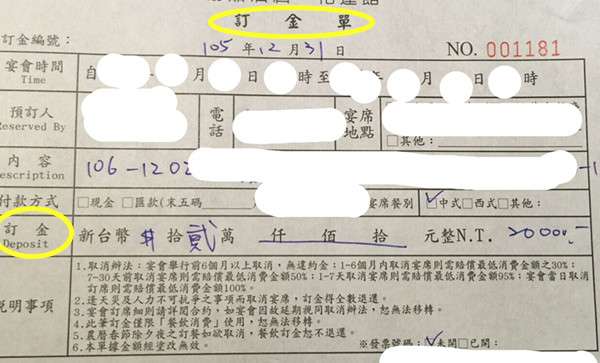 訂金單
訂金編號： 105年12月31日 NO. 001181
宴會時間 Time 自 月 日 時至 年 月 日 時
預訂人 Reserved By 電話 宴席地點 □其他：
內容 Description 106-1202
付款方式 □現金 □匯款(末五碼 宴席餐別 ☑中式□西式□其他：
訂金 Deposit 新台幣 拾貳萬 仟 佰 拾 元整N.T. 20000.-
說明事項
1.取消辦法：宴會舉行前6個月以上取消，無違約金；1-6個月內取消宴席則需賠償最低消費金額之30%；
7-30天前取消宴席則需賠償最低消費金額50%；1-7天取消宴席則需賠償最低消費金額95%；宴會當日取消
訂席則需賠償最低消費金額100%。
2.逢天災及人力不可抗爭之事項而取消宴席，訂金得全數退還。
3.宴會訂席細則請詳閱合約，如宴會因故延期視同取消辦法，恕無法移轉。
4.此筆訂金僅限「餐飲消費」使用，恕無法移轉。
5.農曆春節除夕夜之訂餐如欲取消，餐飲訂金恕不退還。
6.本單據金額經塗改無效。 ※發票號碼：☑未開□已開：